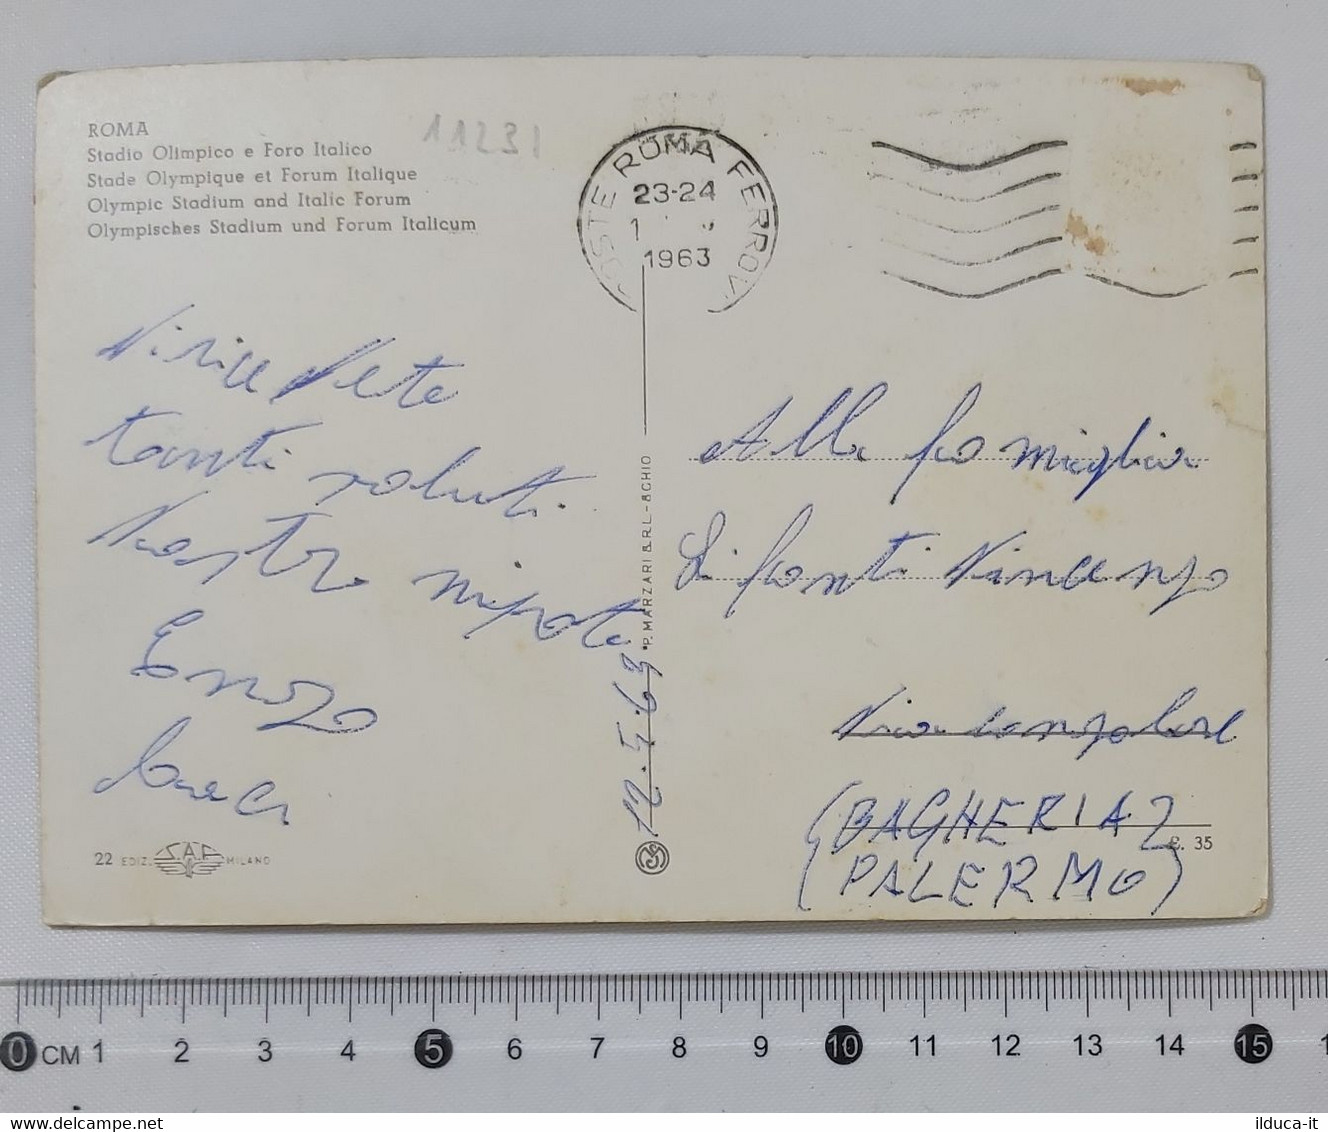 ROMA
Stadio Olimpico e Foro Italico
Stade Olympique et Forum Italique
Olympic Stadium and Italic Forum
Olympisches Stadium und Forum Italicum
11231
POSTE ROMA FERROV
23-24
1
1963
tanti saluti
Vostro nipote
Enzo
baci
12.5.63
P. MARZARI S.R.L. - SCHIO
Alla famiglia
Li fonti Vincenzo
Via
(BAGHERIA)
(PALERMO)
22 EDIZ. S.A.F. MILANO
C. 35
0 CM 1 2 3 4 5 6 7 8 9 10 11 12 13 14 15 1
www.delcampe.net
ilduca-it